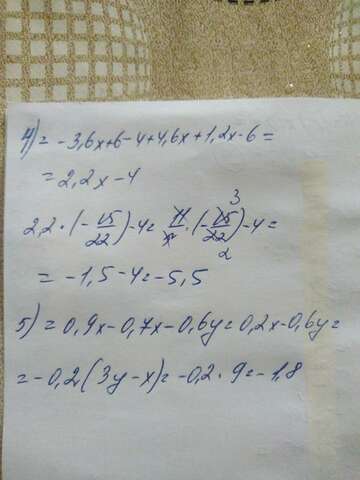 4) = -3,6x+6-4+4,6x+1,2x-6=
= 2,2x-4
2,2·(-15/22)-4= 11/5·(-15/22)-4=
3
2
= -1,5-4=-5,5
5) = 0,9x-0,7x-0,6y=0,2x-0,6y=
= -0,2(3y-x)= -0,2·9=-1,8